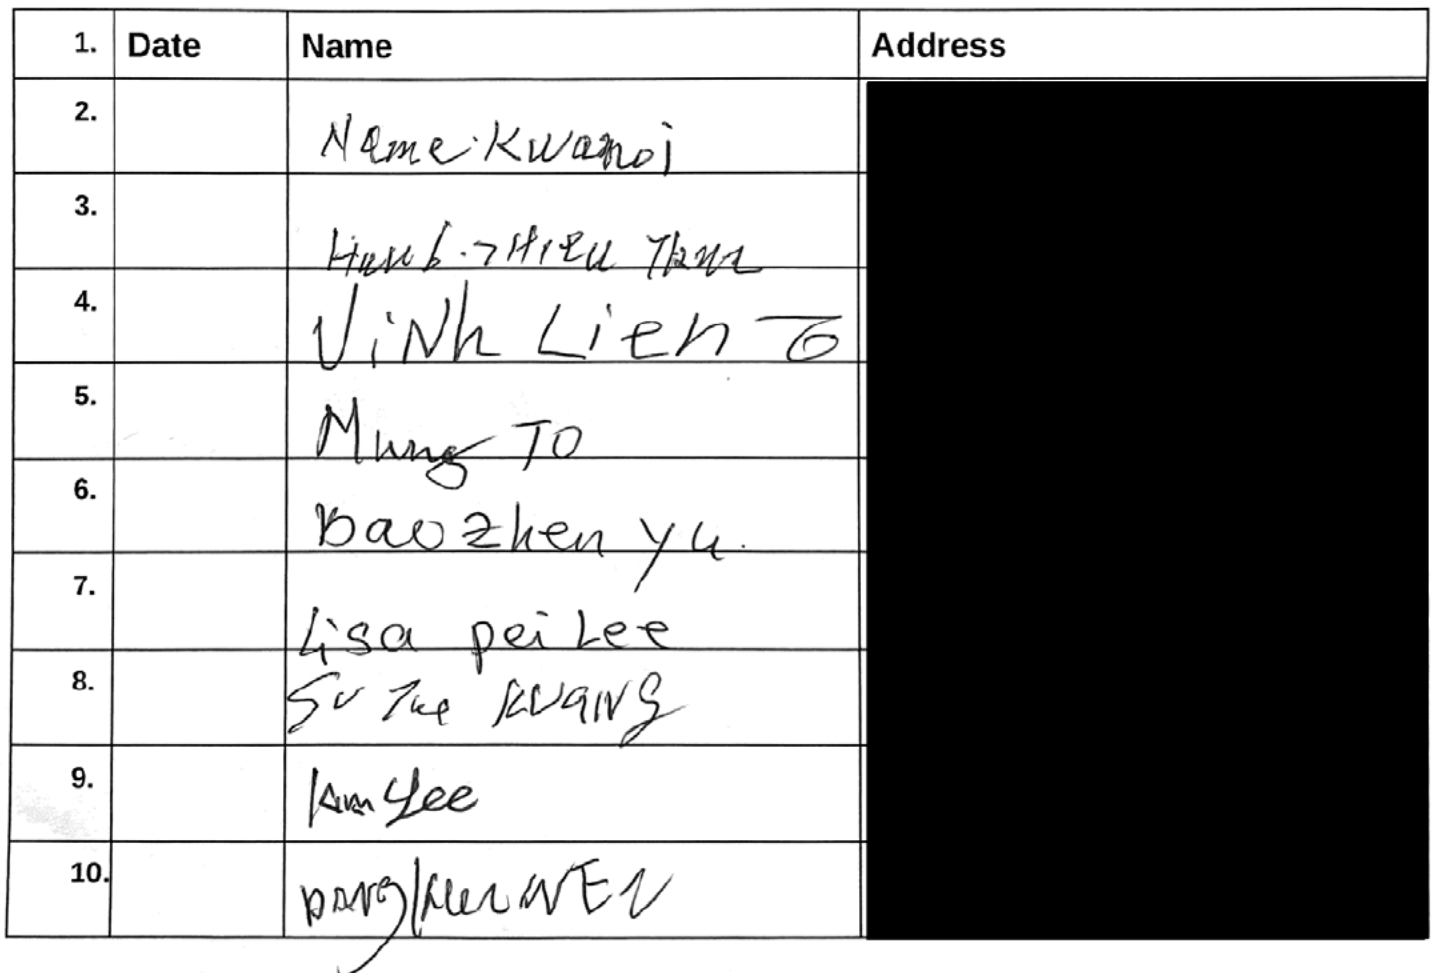 1. Date Name Address
2. Name. Kwanoi
3.
4. Vinh Lien To
5. Mung TO
6. bao zhen yu.
7. Lisa pei Lee
8. Su Tue KUANG
9. Kam Yee
10. WEN